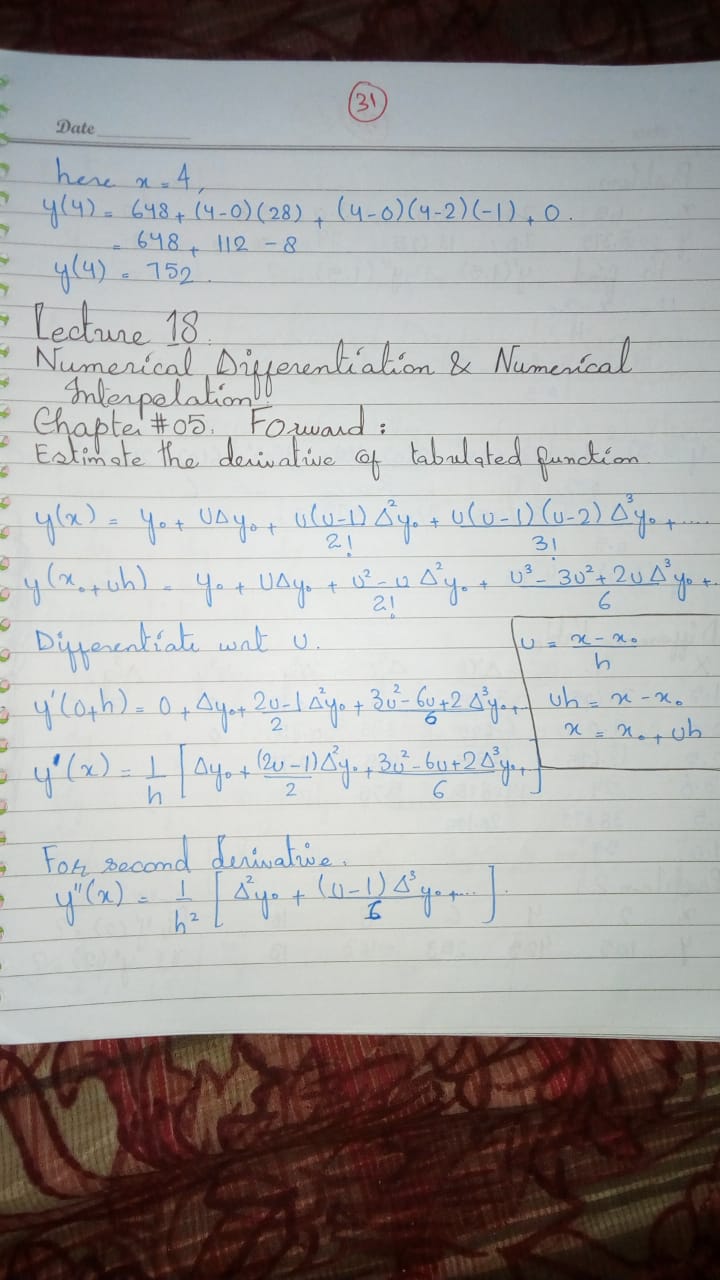 31
Date
here x = 4,
y(4) = 648 + (4-0)(28) + (4-0)(4-2)(-1) + 0.
= 648 + 112 - 8
y(4) = 752.
Lecture 18.
Numerical Differentiation & Numerical
Interpolation.
Chapter #05. Forward:
Estimate the derivative of tabulated function
y(x) = y₀ + UΔy₀ + U(U-1)/2! Δ²y₀ + U(U-1)(U-2)/3! Δ³y₀ + .....
y(x₀+uh) = y₀ + UΔy₀ + U²-U/2! Δ²y₀ + U³-3U²+2U/6 Δ³y₀ + ..
Differentiate wrt U.
y'(0+h) = 0 + Δy₀ + 2U-1/2 Δ²y₀ + 3U²-6U+2/6 Δ³y₀ + ..
y'(x) = 1/h [Δy₀ + (2U-1)/2 Δ²y₀ + 3U²-6U+2/6 Δ³y₀ + ..]
U = x - x₀/h
Uh = x - x₀
x = x₀ + Uh
For second derivative.
y''(x) = 1/h² [Δ²y₀ + (U-1)/6 Δ³y₀ + .....].